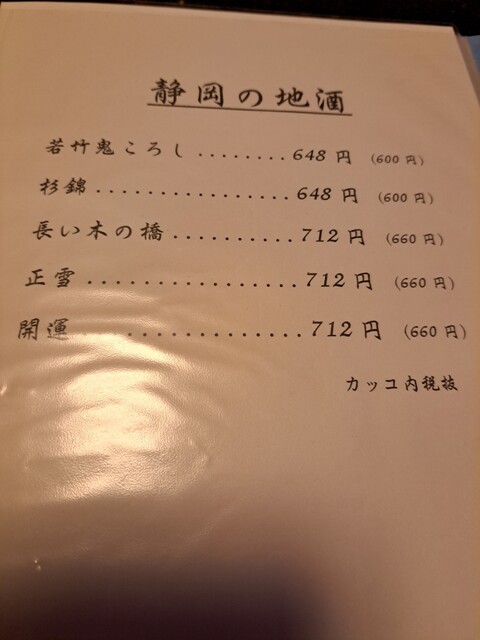 静岡の地酒
若竹鬼ころし ........ 648 円 (600 円)
杉錦 .................. 648 円 (600 円)
長い木の橋 .......... 712 円 (660 円)
正雪 .................. 712 円 (660 円)
開運 .................. 712 円 (660 円)
カッコ内税抜